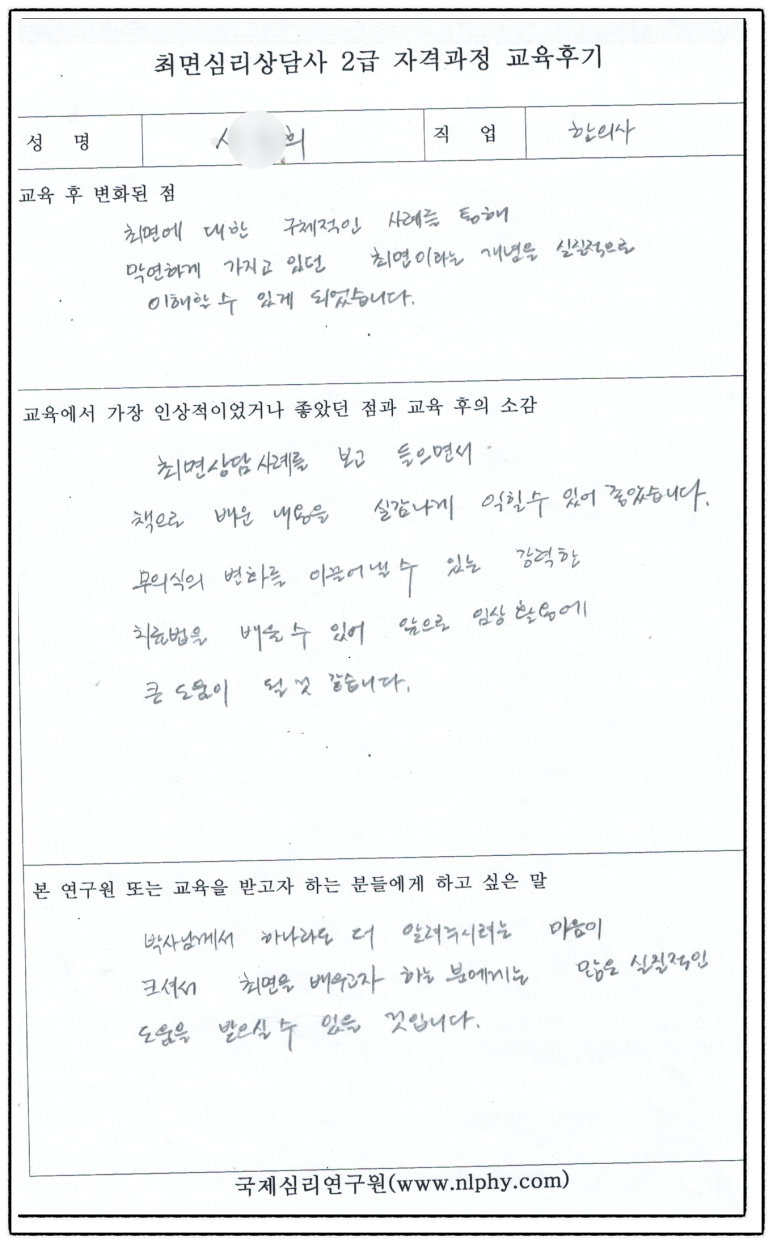 최면심리상담사 2급 자격과정 교육후기
성 명 희 직 업 한의사
교육 후 변화된 점
최면에 대한 구체적인 사례를 통해
막연하게 가지고 있던 최면이라는 개념을 실질적으로
이해할 수 있게 되었습니다.
교육에서 가장 인상적이었거나 좋았던 점과 교육 후의 소감
최면상담 사례를 보고 들으면서
책으로 배운 내용을 실감나게 익힐 수 있어 좋았습니다.
무의식의 변화를 이끌어낼 수 있는 강력한
치료법을 배울 수 있어 앞으로 임상 활용에
큰 도움이 될 것 같습니다.
본 연구원 또는 교육을 받고자 하는 분들에게 하고 싶은 말
박사님께서 하나라도 더 알려주시려는 마음이
크셔서 최면을 배우고자 하는 분에게는 많은 실질적인
도움을 받으실 수 있을 것입니다.
국제심리연구원(www.nlphy.com)